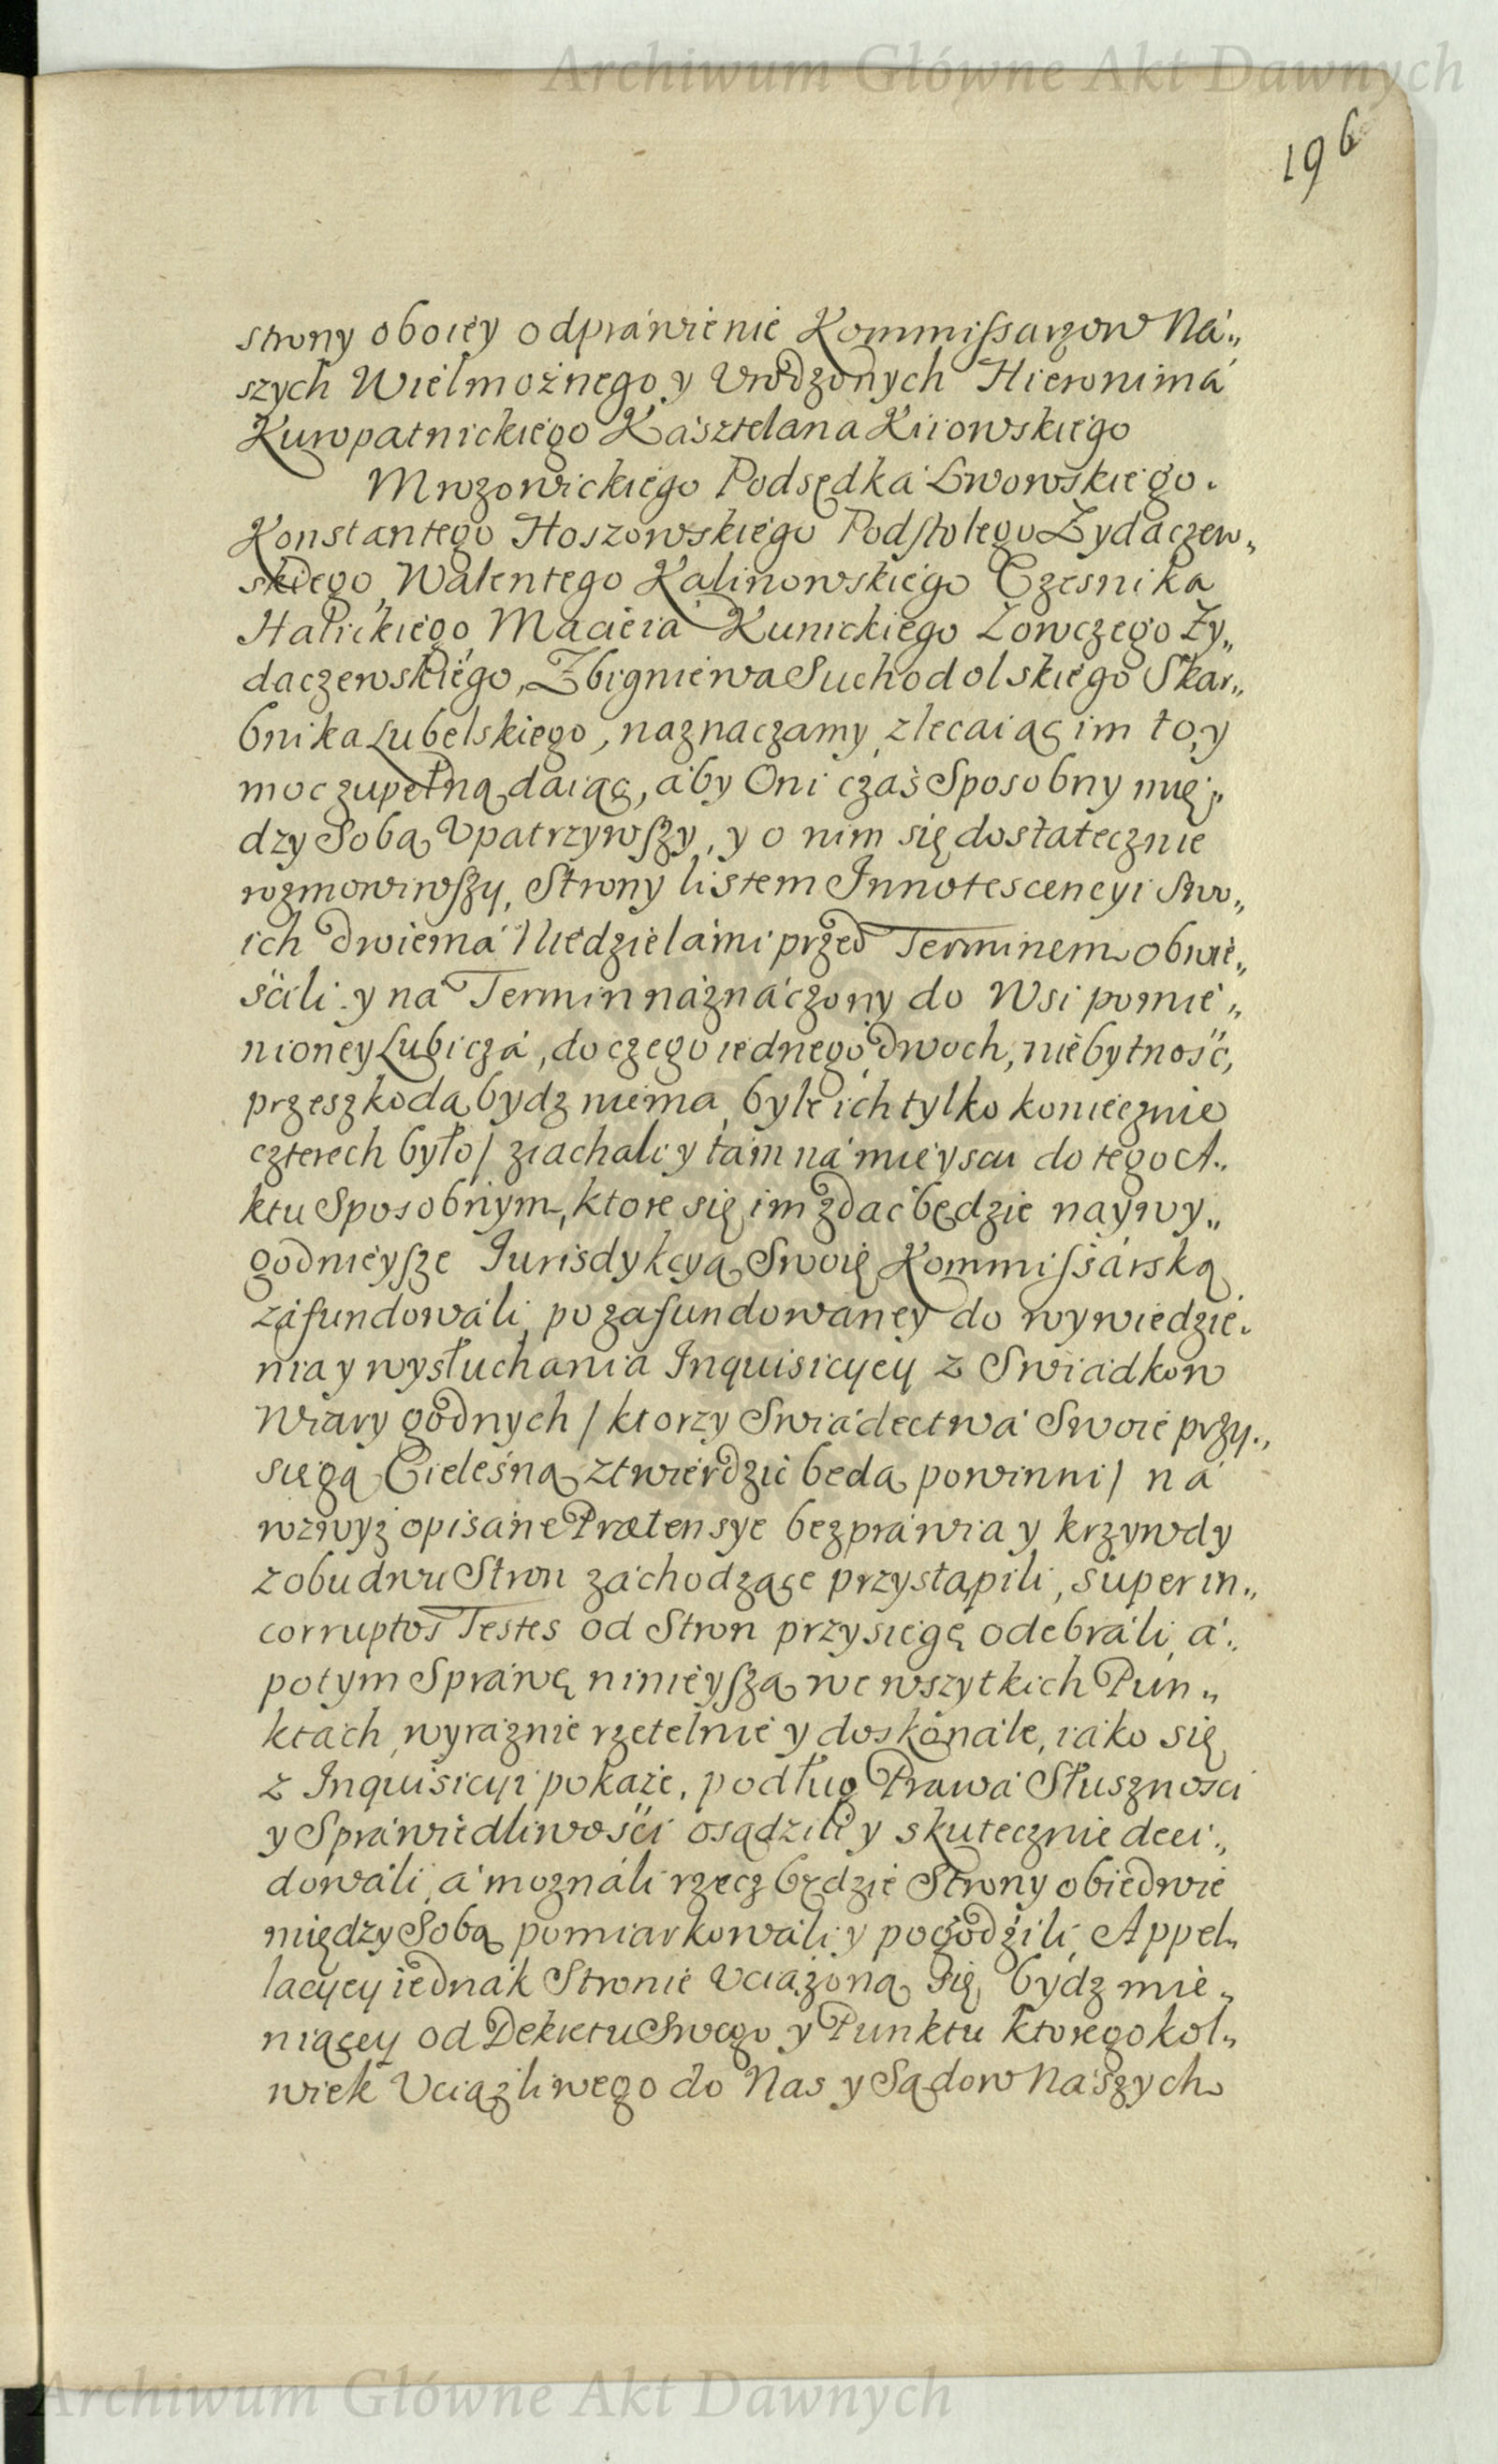 Archiwum Główne Akt Dawnych
196
strony oboiey odpráwienie Kommissarzow Ná„
szych Wielmożnego y Urodzonych Hieronimá
Kuropatnickiego Kásztelana Kiiowskiego
Mrozowickiego Podsędká Lwowskiego.
Konstantego Hoszowskiego Podstolego Zydaczew„
skiego, Walentego Kalinowskiego Czesnika
Halickiego, Macieia Kunickiego Łowczego Zy„
daczewskiego, Zbigniewa Suchodolskiego Skar„
bnika Lubelskiego, naznaczamy, zlecaiąc im to, y
moc zupełną daiąc, áby Oni czás Sposobny mię„
dzy Sobą Upatrzywszy, y o nim się dostatecznie
rozmowiwszy, Strony listem Innotescencyi Swo„
ich dwiemá Niedzielámi przed Terminem obwie„
ścili y ná Termin náznáczony do Wsi pomie„
nioney Lubiczá, do czego iednego, dwoch, niebytność,
przeszkodą bydz niema, byle ich tylko koniecznie
czterech było / ziachali y tám ná mieyscu do tego A„
ktu Sposobnym, ktore się im zdać będzie naywy„
godnieysze Iurisdykcyą Swoię Kommissárską
záfundowáli, po zafundowaney do wywiedzie„
nia y wysłuchania Inquisicyey z Swiadkow
Wiary godnych / ktorzy Swiádectwá Swoie przy„
sięgą Cieleśną ztwierdzić będą powinni / ná
wzwyż opisáne Prætensye bezpráwia y krzywdy
z obudwu Stron záchodzące przystąpili, super in„
corruptos Testes od Stron przysięgę odebráli, á„
potym Spráwę ninieyszą we wszytkich Pun„
ktách, wyráznie rzetelnie y doskonále, iáko się
z Inquisicyi pokaże, podług Prawá Słusznosci
y Spráwiedliwości osądzili y skutecznie deci„
dowáli, á moználi rzecz będzie Strony obiedwie
między Sobą pomiarkowáli y pogodzili, Appel„
lacyey iednák Stronie Uciążoną się bydz mie„
niącey od Dekretu Swego y Punktu ktoregokol„
wiek Uciążliwego do Nas y Sądow Nászych
Archiwum Główne Akt Dawnych